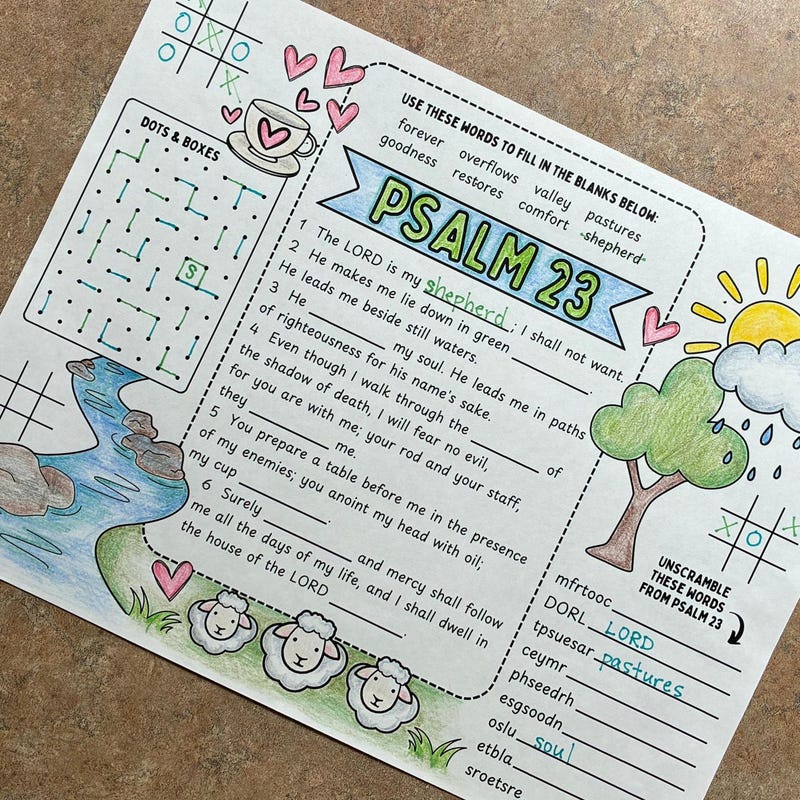 DOTS & BOXES
S
USE THESE WORDS TO FILL IN THE BLANKS BELOW:
forever overflows valley pastures
goodness restores comfort shepherd
PSALM 23
1 The LORD is my shepherd; I shall not want.
2 He makes me lie down in green ________.
He leads me beside still waters.
3 He ________ my soul. He leads me in paths
of righteousness for his name's sake.
4 Even though I walk through the ________ of
the shadow of death, I will fear no evil,
for you are with me; your rod and your staff,
they ________ me.
5 You prepare a table before me in the presence
of my enemies; you anoint my head with oil;
my cup ________.
6 Surely ________ and mercy shall follow
me all the days of my life, and I shall dwell in
the house of the LORD ________.
UNSCRAMBLE
THESE WORDS
FROM PSALM 23
mfrtooc
DORL LORD
tpsuesar pastures
ceymr
phseedrh
esgsoodn
oslu soul
etbla
sroetsre
X O X
X
X O
O
X